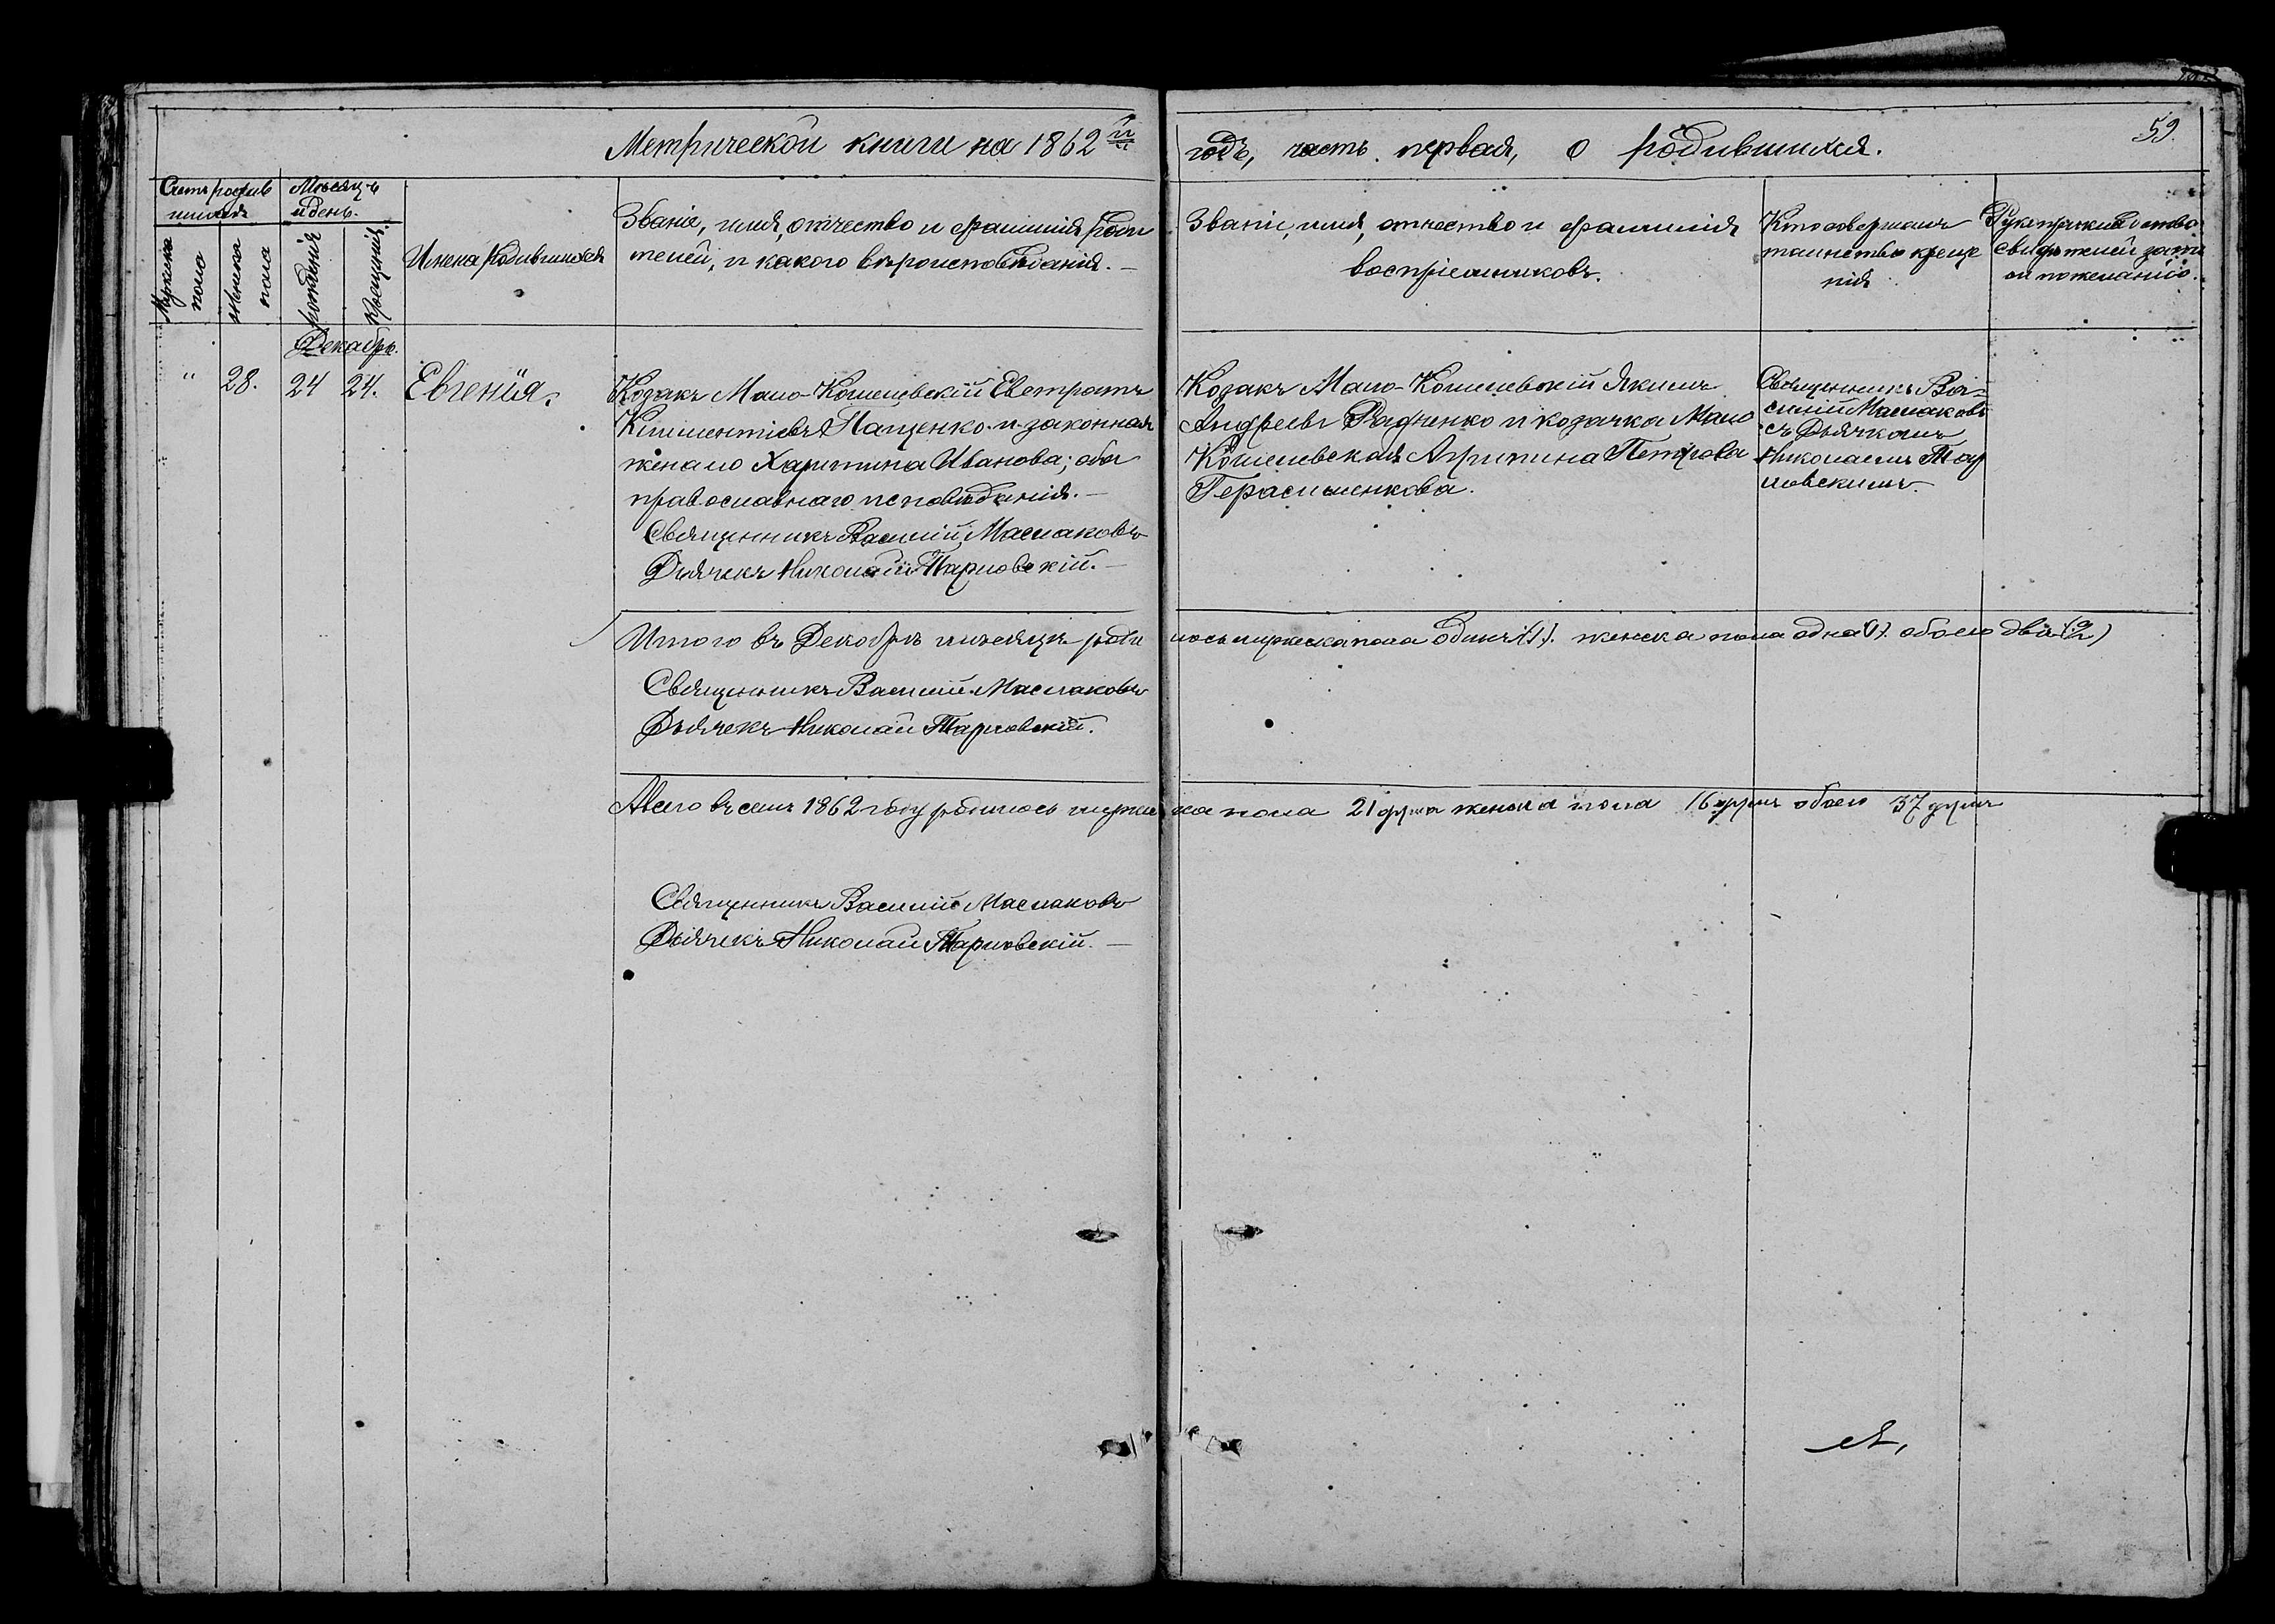 Метрической книги на 1862й годъ, часть первая, о родившихся.
59.
Счетъ родив
шихся
Мѣсяцъ
и день.
Мужска
пола
Женска
пола
рожденія
крещенія
Имена родившихся
Званіе, имя, отчество и фамилія роди
телей, и какого вѣроисповѣданія. —
Званіе, имя, отчество и фамилія
воспріемниковъ.
Кто совершалъ
таинство креще
нія
Рукоприкладство
свидѣтелей записи
по желанію.
Декабрь.
" 28. 24 24. Евгенія.
Козакъ Мало-Кошелевскій Евстратъ
Климентіевъ Пащенко и законная
жена его Харитина Иванова; оба
православнаго исповѣданія. —
Священникъ Василій Маслаковъ
Дьячекъ Николай Тарловскій. —
Козакъ Мало-Кошелевскій Якимъ
Андреевъ Радченко и козачка Мало
Кошелевская Агрипина Петрова
Герасименкова.
Священникъ Ва-
силій Маслаковъ
съ Дьячкомъ
Николаемъ Тар
ловскимъ.
Итого въ Декабрѣ мѣсяцѣ роди лось мужеска пола Одинъ (1). женска пола одна (1). обоего два (2)
Священникъ Василій Маслаковъ
Дьячекъ Николай Тарловскій.
А всего въ семъ 1862 году родилось мужес ка пола 21 душа женска пола 16 душъ обоего 37 душъ
Священникъ Василій Маслаковъ
Дьячекъ Николай Тарловскій. —